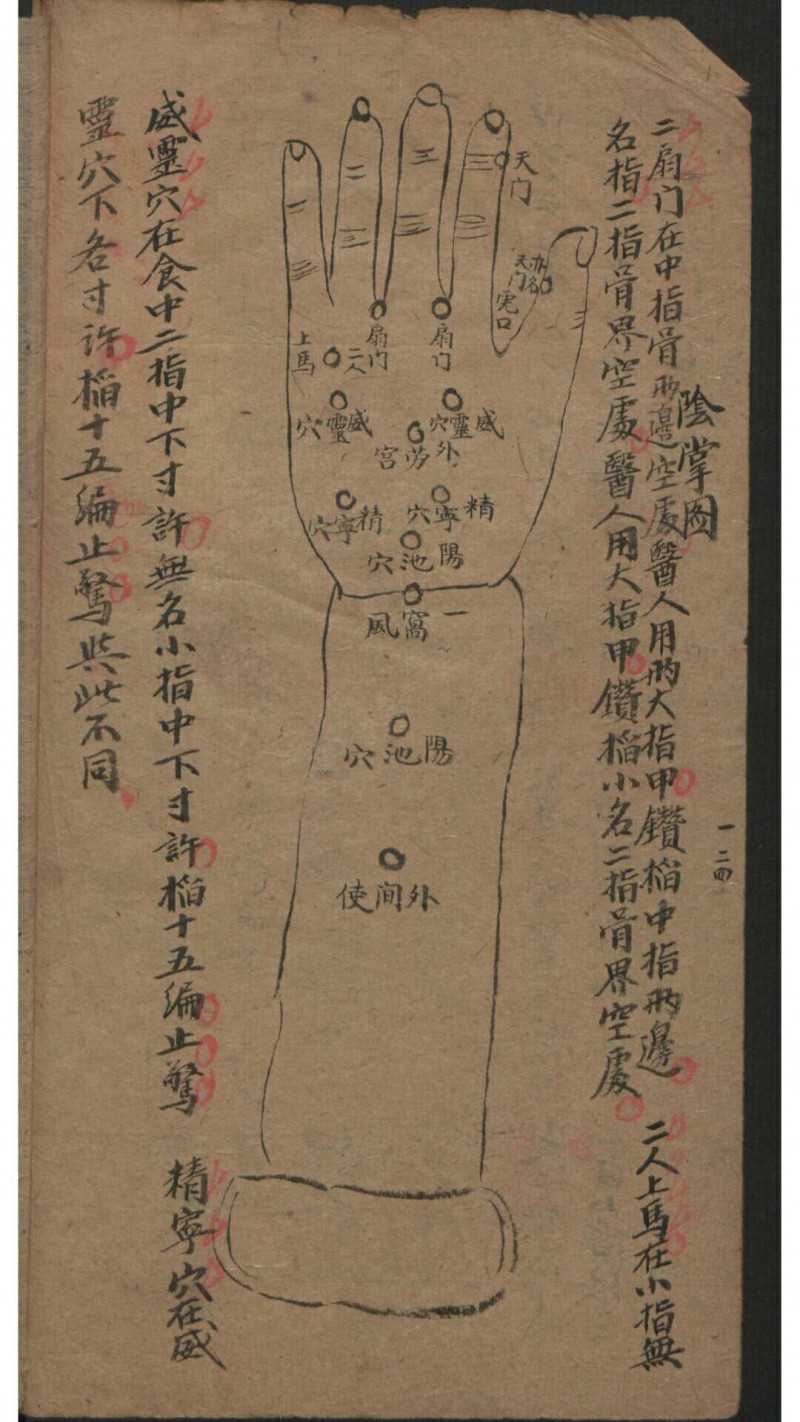 陰掌图
二扇门在中指骨两邊空處醫人用两大指甲鑽掐中指两邊 二人上馬在小指無
名指二指骨界空處醫人用大指甲鑽掐小名二指骨界空處
一二四
天门
亦名
天门
虎口
三
三
三
三
三
二
三
一
三
三
扇门
扇门
二人
上馬
威靈穴
威靈穴
外劳宫
精寧穴
精寧穴
陽池穴
一窩風
陽池穴
外間使
威靈穴在食中二指中下寸許無名小指中下寸許掐十五編止驚 精寧穴在威
靈穴下各寸許掐十五編止驚與此不同